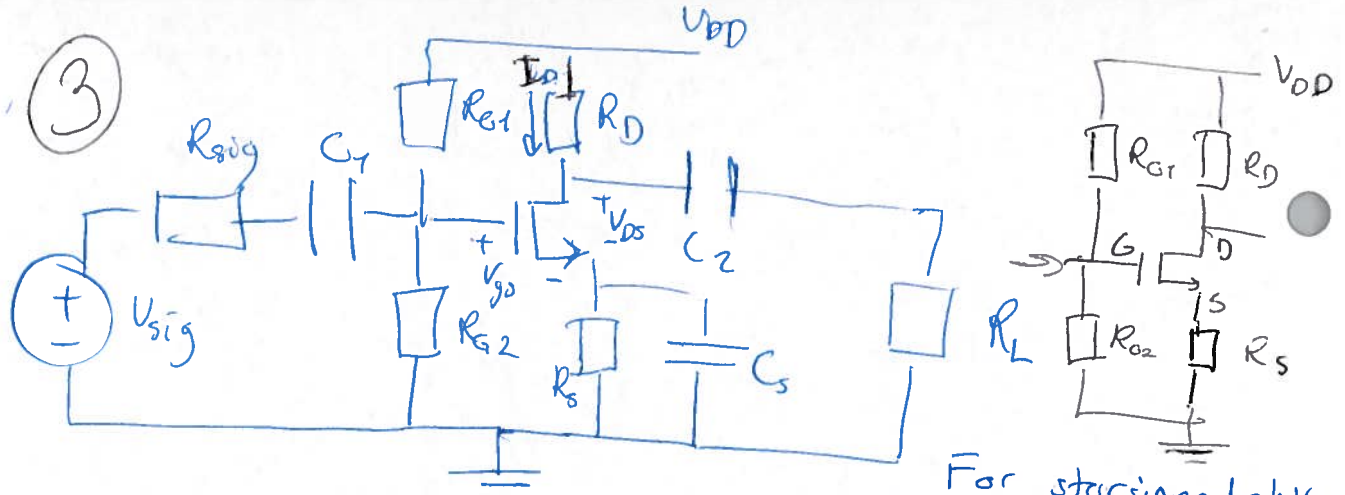 3
VDD
ID
RG1
RD
Rsig
C1
+
VDS
-
C2
+
Vgs
-
+
-
Vsig
RG2
Rs
Cs
RL
VDD
RG1
RD
G
D
S
RG2
RS
For